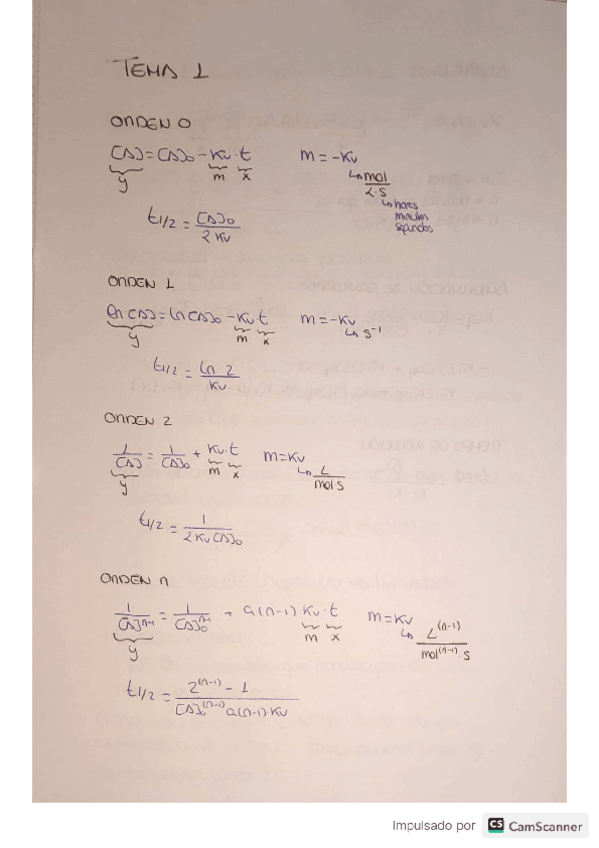 TEMA 1
ORDEN 0
[A] = [A]₀ - Kv·t m = -Kv
y m x ↳ mol / L·S
↳ horas
minutos
segundos
t1/2 = [A]₀ / 2Kv
ORDEN 1
ln [A] = ln [A]₀ - Kv·t m = -Kv
y m x ↳ s⁻¹
t1/2 = ln 2 / Kv
ORDEN 2
1/[A] = 1/[A]₀ + Kv·t m = Kv
y m x ↳ L / mol s
t1/2 = 1 / 2Kv[A]₀
ORDEN n
1/[A]ⁿ⁻¹ = 1/[A]₀ⁿ⁻¹ + a(n-1) Kv·t m = Kv
y m x ↳ L⁽ⁿ⁻¹⁾ / mol⁽ⁿ⁻¹⁾·s
t1/2 = 2⁽ⁿ⁻¹⁾ - 1 / [A]₀⁽ⁿ⁻¹⁾ a(n-1)·Kv
Impulsado por CS CamScanner